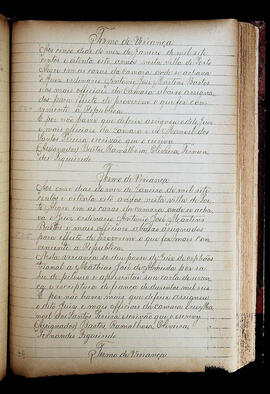 Termo de Veriança
Aos cinco dias do mez de Janeiro de mil sete
centos e oitenta e sete annos nesta villa de Porto
Alegre em as casas da camara onde se achava
o Juiz ordinario Antonio José Martins Bastos
e os mais officiaes da Camara abaixo assigna
dos para effeito de proverem o que fôr com
veniente á Republica.
E por não haver que deferir assignou o dito Juiz
e mais officiaes da Camara e eu Manuel dos
Santos Pereira escrivão que o escrevy
(Assignados) Bastos, Ramalhosa, Oliveira, Fernan
des Figueiredo
Termo de Veriança
Aos onze dias do mez de Janeiro de mil sete
centos e oitenta e sete annos nesta villa de Por
to Alegre em as casas da camara onde se acha
va o Juiz ordinario Antonio José Martins
Bastos e mais officiaes abaixo assignados
para effeito de proverem o que fôr mais com
veniente á Republica.
Nesta veriança se deu posse de Juiz de orphãos
a Mathias José de Almeida
E por não haver mais que deferir assignou
o dito Juiz e mais officiaes da camara e eu Ma
nuel dos Santos Pereira escrivão que o escrevy
(Assignados) Bastos, Ramalhosa, Oliveira,
Fernandes Figueiredo
Termo de Veriança